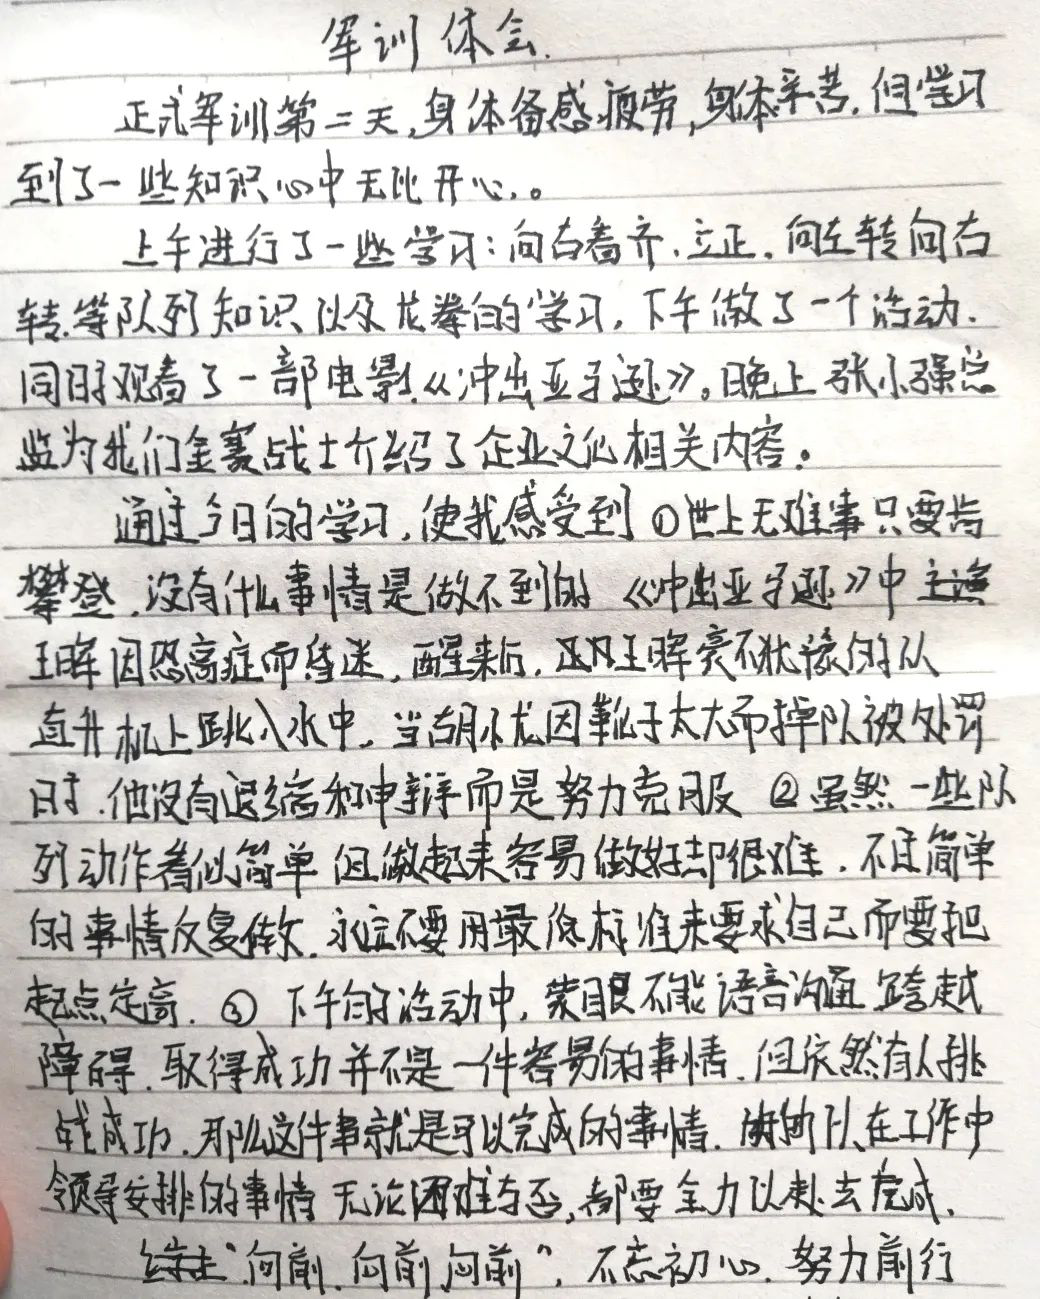 军训体会.
正式军训第二天,身体备感疲劳,身体辛苦.但学习
到了一些知识心中无比开心.。
上午进行了一些学习:向右看齐.立正.向左转向右
转.等队列知识以及龙拳的学习,下午做了一个活动.
同时观看了一部电影《冲出亚马逊》。晚上张小强总
监为我们金赛战士介绍了企业文化相关内容.
通过今日的学习,使我感受到①世上无难事只要肯
攀登.没有什么事情是做不到的《冲出亚马逊》中
王晖因恐高症而昏迷,醒来后,王晖毫不犹豫的从
直升机上跳入水中.当胡小龙因靴子太大而掉队被处罚
时.他没有退缩和申辩而是努力克服②虽然一些队
列动作看似简单但做起来容易做好却很难.不过简单
的事情反复做.永远不要用最低标准来要求自己而要把
起点定高.③下午的活动中,蒙眼不能语音沟通跨越
障碍.取得成功并不是一件容易的事情.但依然有人挑
战成功.那么这件事就是可以完成的事情.在工作中
领导安排的事情无论困难与否,都要全力以赴去完成.
"向前.向前向前",不忘初心.努力前行